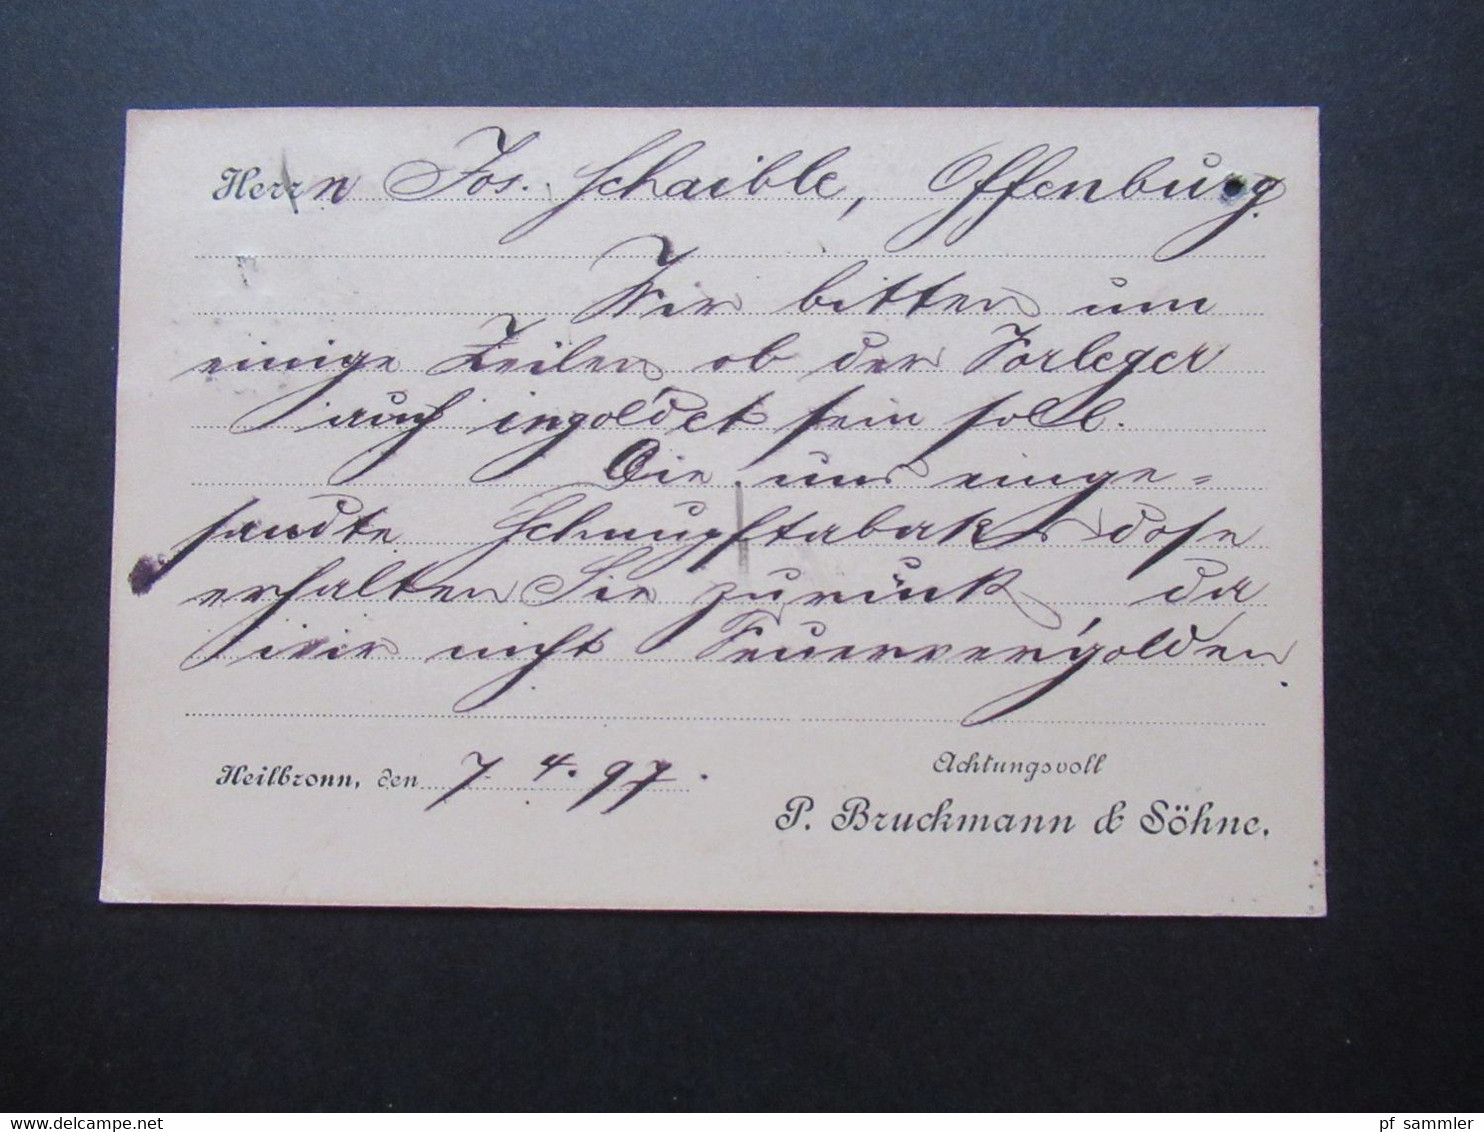 Herrn Jos. Schaible, Offenburg.
Wir bitten um
einige Zeilen ob der Vorleger
auch ingoldet sein soll.
Die uns einge=
sandte Schnupftabaksdose
erhalten Sie zurück da
wir nicht Feuervergolden.
Heilbronn, den 7. 4. 97.
Achtungsvoll
P. Bruckmann & Söhne.
www.delcampe.net
pf_sammler